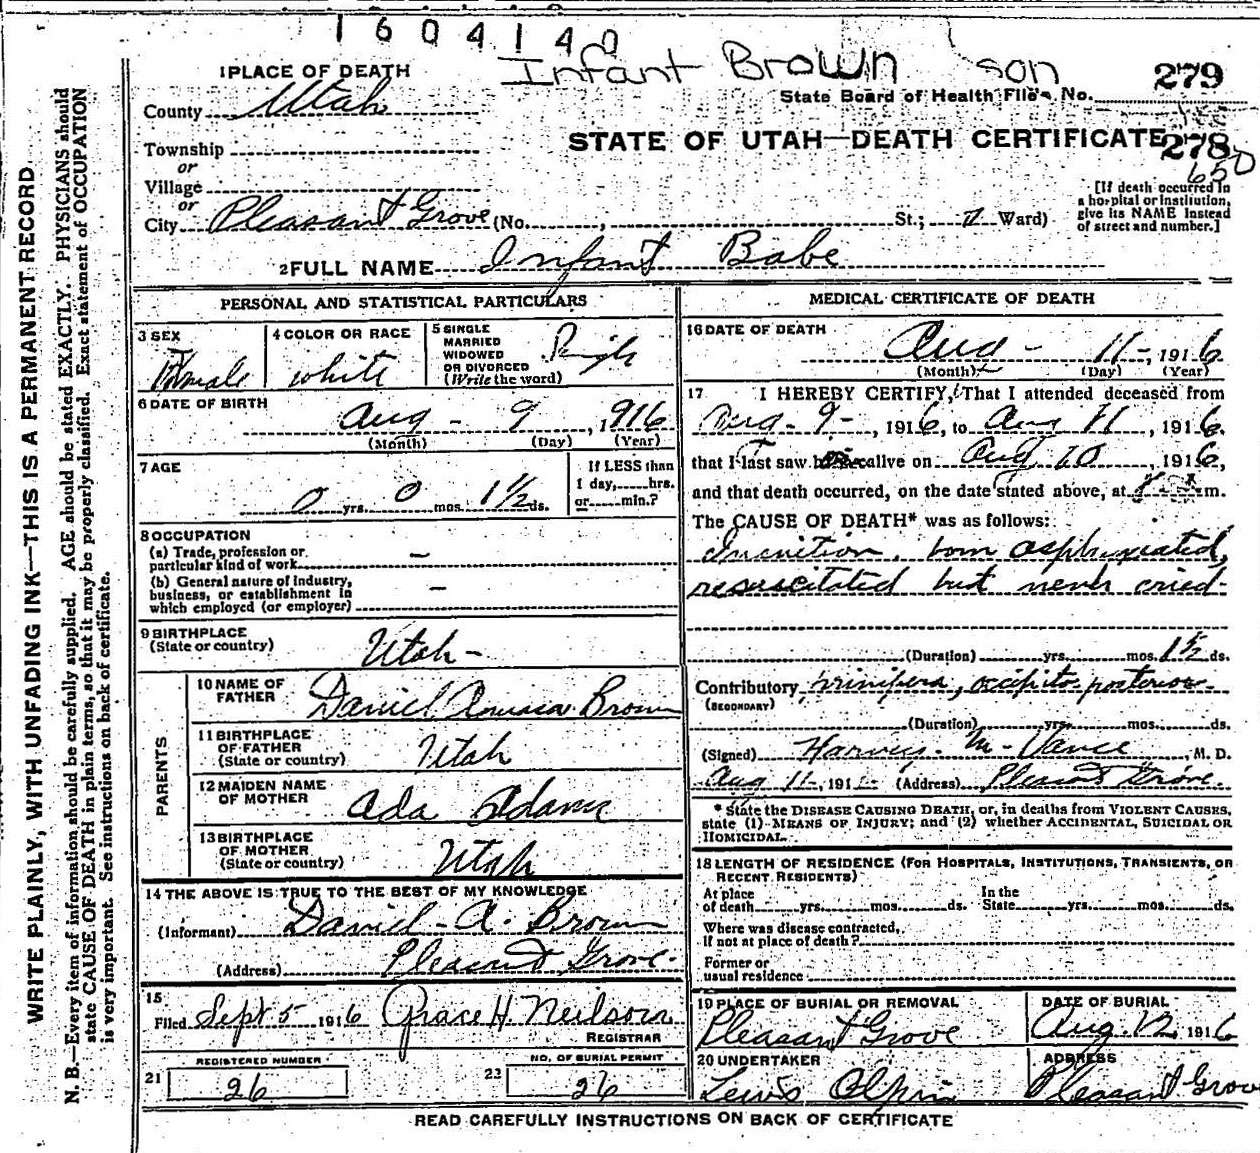 1604140
Infant Brown son 279
1 PLACE OF DEATH
State Board of Health File No.
County Utah
STATE OF UTAH—DEATH CERTIFICATE 278
650
Township
or
Village
or
City Pleasant Grove (No. , St.; Ward)
[If death occurred in a hospital or institution, give its NAME instead of street and number.]
2 FULL NAME Infant Babe
PERSONAL AND STATISTICAL PARTICULARS
3 SEX
4 COLOR OR RACE white
5 SINGLE MARRIED WIDOWED OR DIVORCED (Write the word) Single
6 DATE OF BIRTH
Aug - 9, 1916
(Month) (Day) (Year)
7 AGE
0 yrs. 0 mos. 1½ ds.
If LESS than 1 day, hrs. or min.?
8 OCCUPATION
(a) Trade, profession or particular kind of work —
(b) General nature of industry, business, or establishment in which employed (or employer) —
9 BIRTHPLACE (State or country) Utah -
PARENTS
10 NAME OF FATHER Daniel Brown
11 BIRTHPLACE OF FATHER (State or country) Utah
12 MAIDEN NAME OF MOTHER Ada Adams
13 BIRTHPLACE OF MOTHER (State or country) Utah
14 THE ABOVE IS TRUE TO THE BEST OF MY KNOWLEDGE
(Informant) Daniel A. Brown
(Address) Pleasant Grove.
15
Filed Sept 5 1916 Grace H. Neilson
REGISTRAR
21 REGISTERED NUMBER 26
22 NO. OF BURIAL PERMIT 26
MEDICAL CERTIFICATE OF DEATH
16 DATE OF DEATH
Aug - 11-, 1916
(Month) (Day) (Year)
17 I HEREBY CERTIFY, That I attended deceased from
Aug. 9-, 1916, to Aug 11, 1916,
that I last saw alive on Aug 10, 1916,
and that death occurred, on the date stated above, at m.
The CAUSE OF DEATH* was as follows:
Inanition. born asphyxiated,
resuscitated but never cried-
(Duration) yrs. mos. 1½ ds.
Contributory primipera, occipito-posterior
(SECONDARY)
(Duration) yrs. mos. ds.
(Signed) M. Vance M. D.
Aug 11-, 191 (Address) Pleasant Grove.
* State the DISEASE CAUSING DEATH, or, in deaths from VIOLENT CAUSES,
state (1) MEANS OF INJURY; and (2) whether ACCIDENTAL, SUICIDAL OR
HOMICIDAL.
18 LENGTH OF RESIDENCE (FOR HOSPITALS, INSTITUTIONS, TRANSIENTS, OR
RECENT RESIDENTS)
At place of death yrs. mos. ds. In the State yrs. mos. ds.
Where was disease contracted,
if not at place of death?
Former or
usual residence
19 PLACE OF BURIAL OR REMOVAL Pleasant Grove
DATE OF BURIAL Aug. 12 1916
20 UNDERTAKER Lewis Olpin
ADDRESS Pleasant Grove
READ CAREFULLY INSTRUCTIONS ON BACK OF CERTIFICATE
WRITE PLAINLY, WITH UNFADING INK—THIS IS A PERMANENT RECORD
N. B.—Every item of information should be carefully supplied. AGE should be stated EXACTLY. PHYSICIANS should
state CAUSE OF DEATH in plain terms, so that it may be properly classified. Exact statement of OCCUPATION
is very important. See instructions on back of certificate.